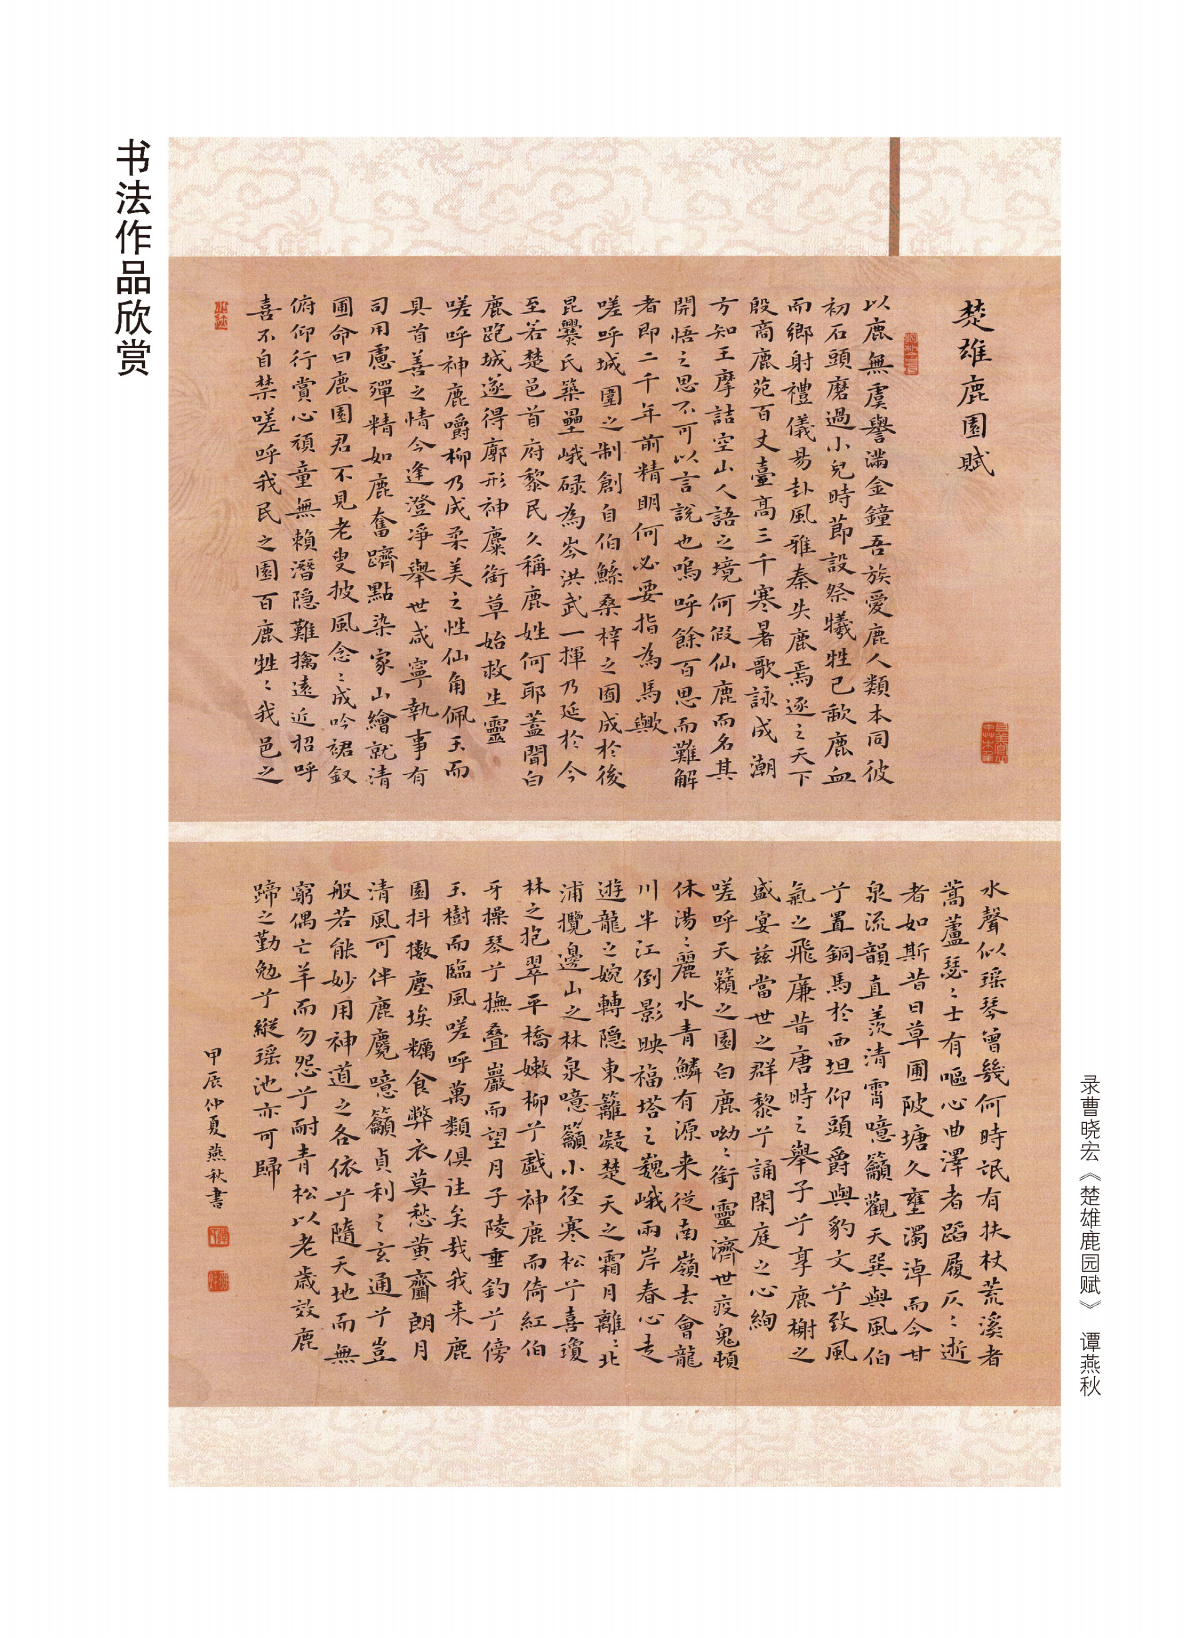 书法作品欣赏
楚雄鹿園賦
以鹿無虞譽滿金鐘吾族愛鹿人類本同彼
初石頭磨過小兒時節設祭犧牲已歃鹿血
而鄉射禮儀易卦風雅秦失鹿焉逐之天下
殷商鹿苑百丈臺高三千寒暑歌詠成潮
方知王摩詰空山人語之境何假仙鹿而名其
開悟之思不可以言說也嗚呼餘百思而難解
者即二千年前精明何必要指為馬歟
嗟呼城圍之制創自伯鯀桑梓之囿成於後
昆爨氏築壘峨碌為岑洪武一揮乃延於今
至若楚邑首府黎民久稱鹿姓何耶蓋聞白
鹿跑城遂得廓形神麋銜草始救生靈
嗟呼神鹿嚼柳乃成柔美之性仙角佩玉而
具首善之情今逢澄淨舉世咸寧執事有
司用慮殫精如鹿奮躋點染家山繪就清
圃命曰鹿園君不見老叟披風念〻成吟裙釵
俯仰行賞心頑童無賴潛隐難擒遠近招呼
喜不自禁嗟呼我民之園百鹿甡〻我邑之
水聲似瑶琴曾幾何時氓有扶杖荒溪者
蒿蘆瑟〻士有嘔心曲澤者蹈履仄〻逝
者如斯昔日草圃陂塘久壅濁淖而今甘
泉流韻直羡清霄噫籲觀天巽與風伯
兮置銅馬於西坦仰頭爵與豹文兮致風
氣之飛廉昔唐時之舉子兮享鹿榭之
盛宴兹當世之群黎兮誦閑庭之心絢
嗟呼天籟之園白鹿呦〻銜靈濟世疫鬼頓
休湯〻麗水青鱗有源来從南嶺去會龍
川半江倒影映福塔之巍峨兩岸春心走
遊龍之婉轉隐東籬凝楚天之霜月離〻北
浦攬邊山之林泉噫籲小径寒松兮喜瓊
林之抱翠平橋嫩柳兮戲神鹿而倚紅伯
牙操琴兮撫叠巖而望月子陵垂釣兮傍
玉樹而臨風嗟呼萬類俱往矣哉我来鹿
園抖擻塵埃糲食弊衣莫愁黄齏朗月
清風可伴鹿麑噫籲貞利之玄通兮豈
般若能妙用神道之各依兮隨天地而無
窮偶亡羊而勿怨兮耐青松以老歲效鹿
蹄之勤勉兮縱瑶池亦可歸
甲辰仲夏燕秋書
录曹晓宏《楚雄鹿园赋》 谭燕秋